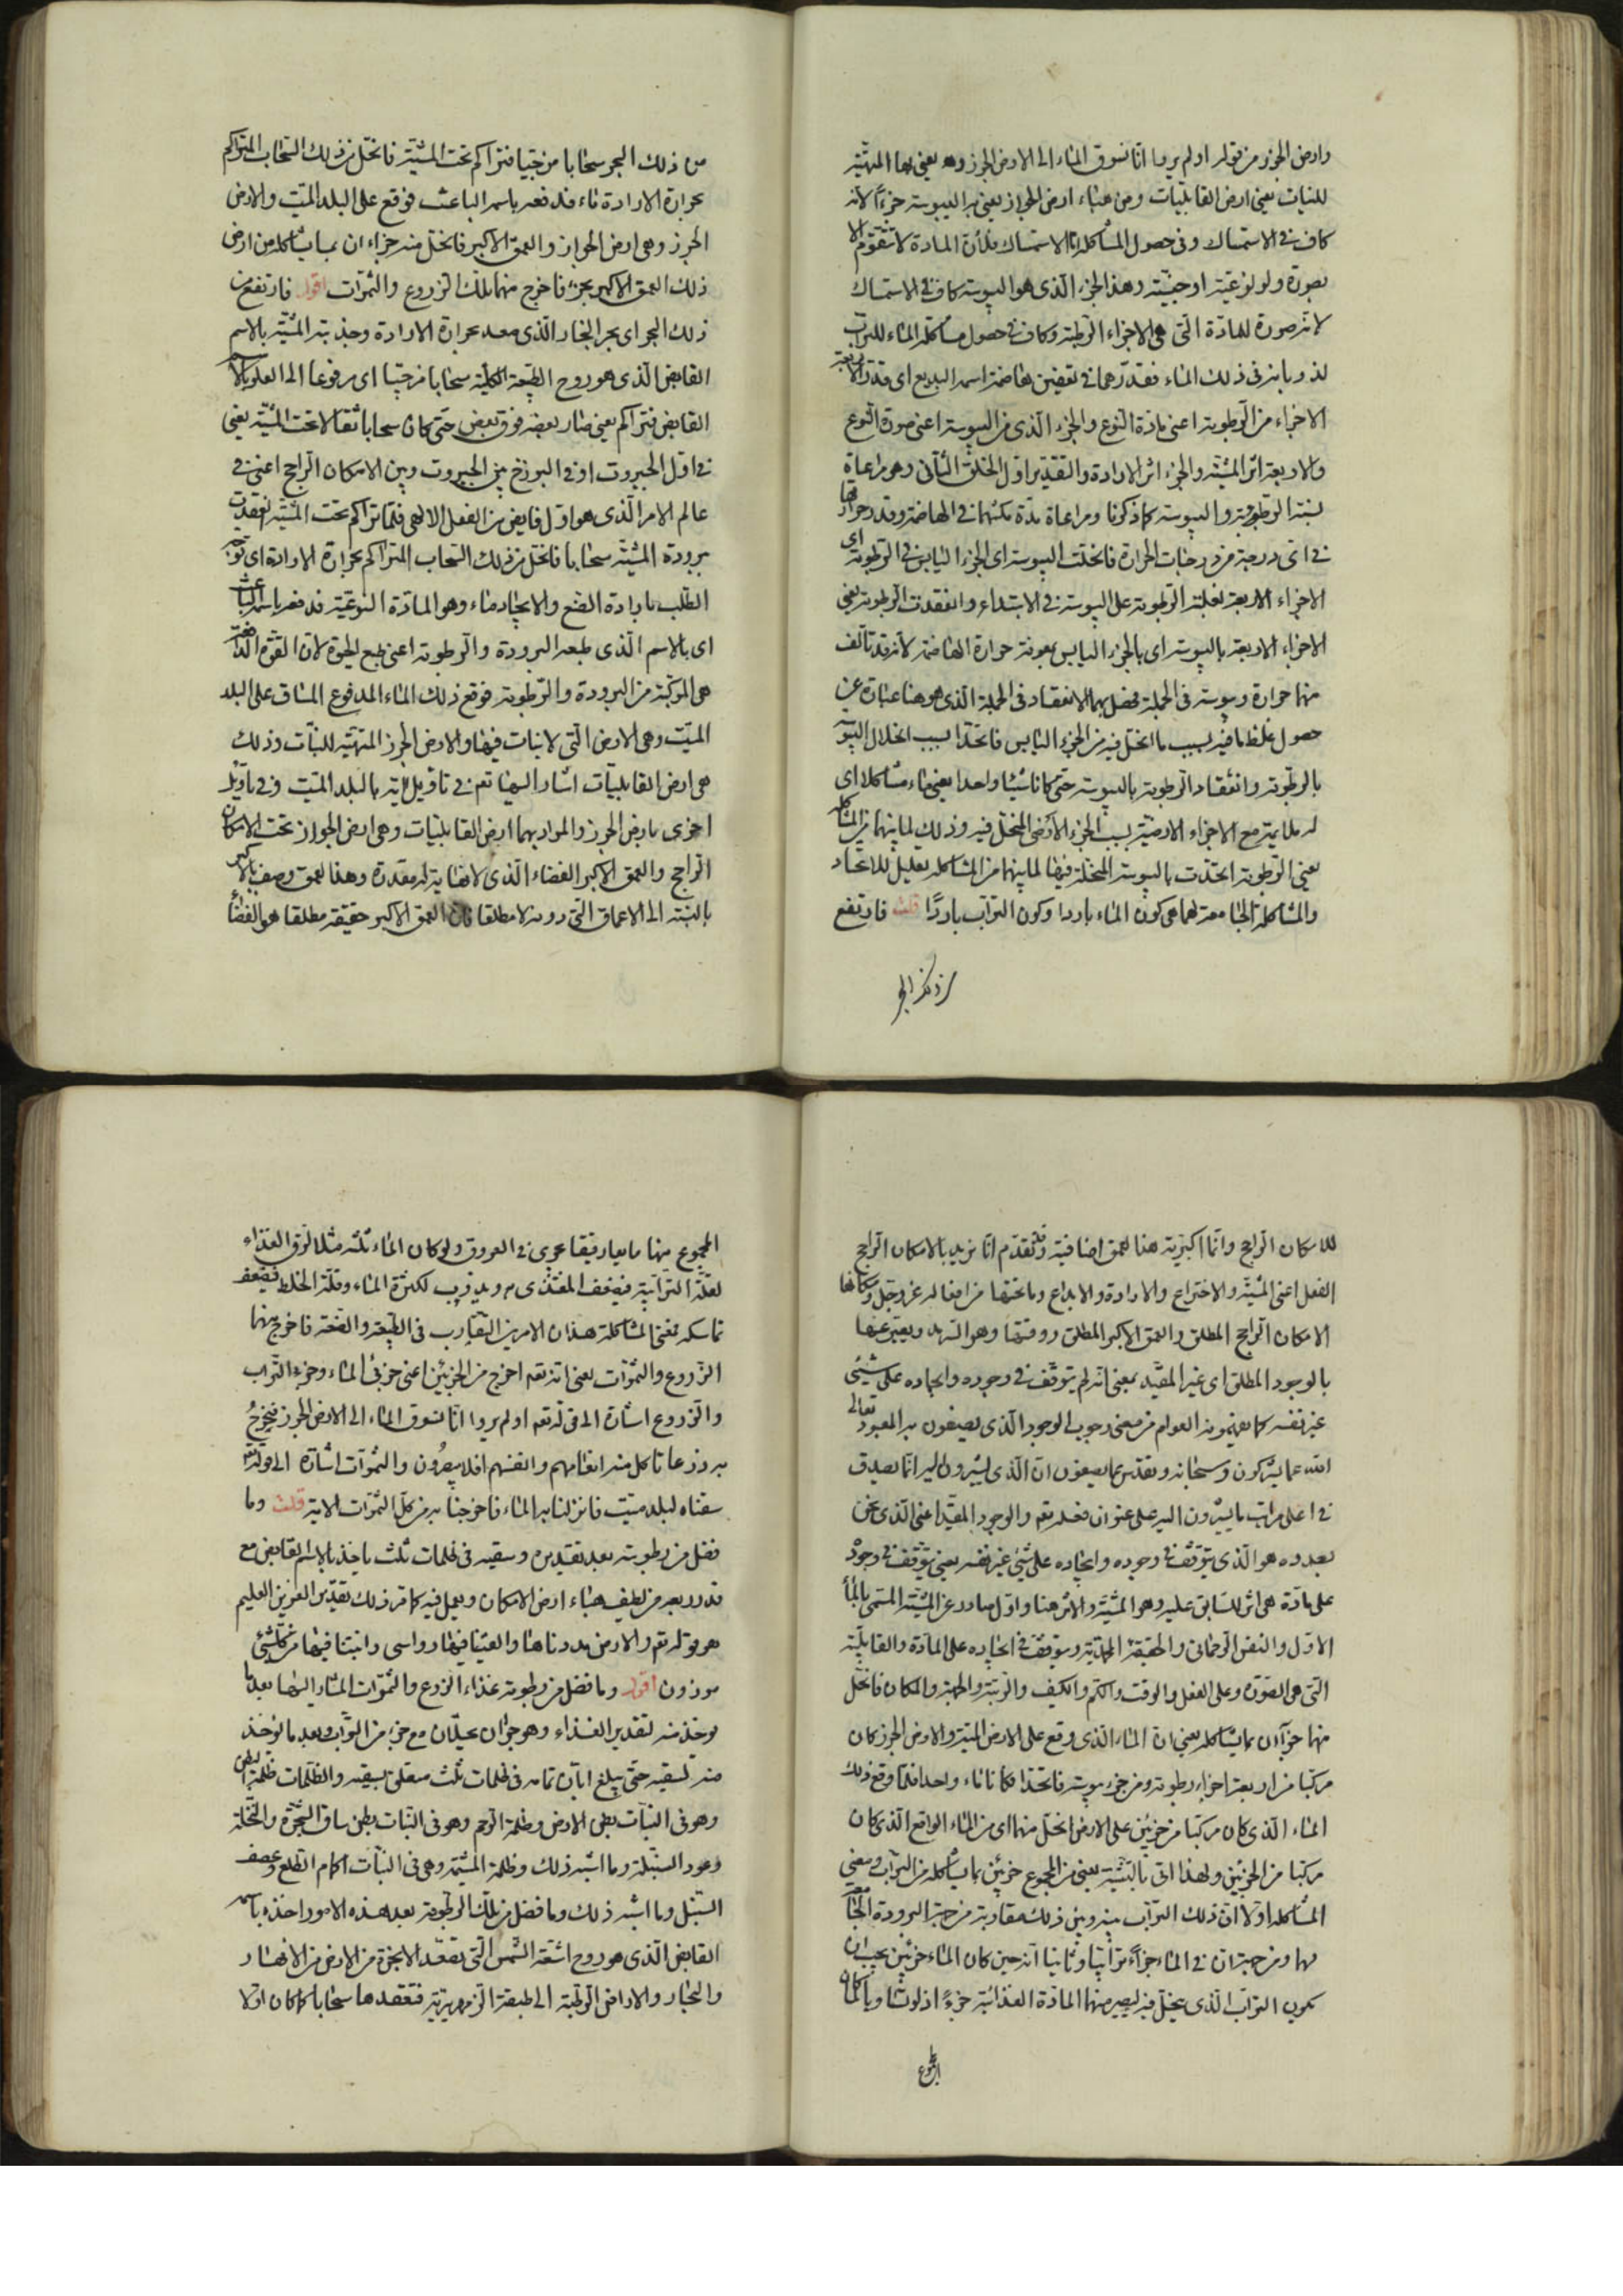 وارض الجرز من قوله اولم يروا انا نسوق الماء الى الارض الجرز وهو يعنى بها المتهيّئة
للنبات يعنى ارض القابليات ومن هباء ارض الجواز يعنى به اليبوسة جزءًا لانه
كاف فى الاستمساك وفى حصول المشاكلة امّا الاستمساك فلأنّ المادة لا تتقوّم الا
بصورة ولو نوعيّة او جنسيّة وهذا الجزء الّذى هو اليبوسة كاف فى الاستمساك
لانّه صورة للمادّة الّتى هى الاجزاء الرّطبة وكاف فى حصول مشاكلة الماء للتراب
لذوبانه فى ذلك الماء فقدّرهما فى تعفين هاضمة اسمه البديع اى قدّر الاربعة
الاجزاء من الرّطوبة اعنى مادّة النّوع والجزء الّذى من اليبوسة اعنى صورة النّوع
والاربعة اثر المشيّة والجزء اثر الارادة والتقدير اوّل الخلق الثّانى وهو مراعاة
نسبة الرّطوبة واليبوسة كما ذكرنا ومراعاة مدّة مكثهما فى الهاضمة وقدر حرارتها
فى اىّ درجة من درجات الحرارة فانحلّت اليبوسة اى الجزء اليابس فى الرّطوبة اى
الاجزاء الاربعة لغلبة الرّطوبة على اليبوسة فى الابتداء وانعقدت الرّطوبة يعنى
الاجزاء الاربعة باليبوسة اى بالجزء اليابس بمعونة حرارة الهاضمة لانّه قد تألّف
منها حرارة ويبوسة فى الجملة فحصل بهما الانعقاد فى الجملة الّذى هو هنا عبارة عن
حصول غلظ ما فيه بسبب ما انحلّ فيه من الجزء اليابس فاتّحدا بسبب انحلال اليبوسة
بالرطوبة وانعقاد الرّطوبة باليبوسة حتّى كانا شيئا واحدا يعنى ماء مشاكلا اى
له ملايمة مع الاجزاء الارضيّة بسبب الجزء الارضى المنحلّ فيه وذلك لما بينهما من المشاكلة
يعنى الرّطوبة اتّحدت باليبوسة المنحلّة فيها لما بينهما من المشاكلة تعليل للاتحاد
والمشاكلة الجامعة لهما هى كون الماء باردا وكون التراب باردًا قلت فارتفع
من ذلك البحر
من ذلك البحر سحابا مزجيا فتراكم تحت المشيّة فانحلّ من ذلك السّحاب المتراكم
بحرارة الارادة ماء فدفعه باسمه الباعث فوقع على البلد الميّت والارض
الجرز وهى ارض الجواز والعمق الاكبر فانحلّ منه جزءان بما يشاكله من ارض
ذلك العمق الاكبر بجزء فاخرج منهما تلك الزروع والثمرات اقول فارتفع من
ذلك البحر اى بحر البخار الّذى صعد بحرارة الارادة وجذبته المشيّة بالاسم
القابض الّذى هو روح الطّبيعة الكليّة سحابا مزجيّا اى مرفوعا الى العلو بالاسم
القابض فتراكم يعنى صار بعضه فوق بعض حتى كان سحابا ثقالا تحت المشيّة يعنى
فى اوّل الجبروت او فى البرزخ بين الجبروت وبين الامكان الراجح اعنى فى
عالم الامر الّذى هو اوّل فايض من الفعل الالهى فلمّا تراكم تحت المشيّة انعقدت
ببرودة المشيّة سحابا فانحلّ من ذلك السّحاب المتراكم بحرارة الارادة اى توجّه
الطّلب بارادة الصّنع والايجاد ماء وهو المادّة النوعيّة فدفعه باسمه الباعث
اى بالاسم الّذى طبعه البرودة والرطوبة اعنى طبع الحيوة لانّ القوّة الدافعة
هى المركّبة من البرودة والرّطوبة فوقع ذلك الماء المدفوع المساق على البلد
الميّت وهى الارض الّتى لا نبات فيها والارض الجرز المتهيّئة للنّبات وذلك
هى ارض القابليّات اشار اليها تعم فى تاويل اية بالبلد الميّت وفى تاويل
اخرى بارض الجرز والمراد بهما ارض القابليّات وهى ارض الجواز تحت الامكان
الراجح والعمق الاكبر الفضاء الّذى لا نهاية له مقدرة وهذا العمق وصف بالاكبر
بالنّسبة الى الاعماق الّتى دونه لا مطلقا فانّ العمق الاكبر حقيقة مطلقا هو الفضاء
للامكان الراجح وانّما اكبريّة هذا العمق اضافيّة وقد تقدّم انّا نريد بالامكان الراجح
الفعل اعنى المشيّة والاختراع والارادة والابداع وما تحتها من افعاله عز وجل ومكانها
الامكان الراجح المطلق والعمق الاكبر المطلق ووقتها وهو السّرمد ويعبّر عنها
بالوجود المطلق اى غير المقيّد بمعنى انّه لم يتوقّف فى وجوده وايجاده على شيئ
غير نفسه كما يفهمونه العوام من معنى وجوب الوجود الّذى يصفون به المعبود تعالى
الله عما يشركون وسبحانه وتقدّس عما يصفون انّ الّذى يشيرون اليه انّما يصدق
فى اعلى مراتب ما يشيرون اليه على عنوان فعله تعم والوجود المقيّد اعنى الّذى نحن
بصدده هو الّذى يتوقّف فى وجوده وايجاده على شيئ غير نفسه يعنى يتوقّف فى وجوده
على مادّة هى اثر السّابق عليه وهو المشيّة والاثر هنا واوّل صادر عن المشيّة المسمّى بالماء
الاوّل والنفس الرّحمانى والحقيقة المحمّدية ويتوقّف فى ايجاده على المادّة والقابليّة
التى هى الصّورة وعلى الفعل والوقت والكمّ والكيف والرّتبة والجهة والمكان فانحلّ
منها جزءان بما يشاكله يعنى انّ الماء الّذى وقع على الارض الميّتة والارض الجرز كان
مركّبا من اربعة اجزاء رطوبة ومن جزء يبوسة فاتّحدا فكانا ماء واحدا فلمّا وقع ذلك
الماء الّذى كان مركّبا من جزئين على الارض انحلّ منهما اى من الماء الواقع الّذى كان
مركّبا من الجزئين ولهذا اتى بالتّثنية يعنى من المجموع جزئين بما يشاكله من التراب ومعنى
المشاكلة اوّلا انّ ذلك التراب بينه وبين ذلك مقاربة من جهة البرودة الجامعة
لهما ومن جهة انّ فى الماء جزءًا ترابيّا وثانيا انّه حين كان الماء جزئين يجب ان
يكون التراب الّذى ينحلّ فيه ليصير منهما المادّة الغذائيّة جزءً اذ لو تساويا لكان
المجموع
المجموع منهما مايعا رقيقا يجرى فى العروق ولو كان الماء ثلثه مثلا لرقّ الغذاء
لقلّة الترابيّة فيضعف المغتذى به ويذوب لكثرة الماء وقلّة الخلط فيضعف
تماسكه فمعنى المشاكلة هذان الامرين التقارب فى الطّبيعة والصّفة فاخرج منهما
الزّروع والثمرات يعنى انّه تعم اخرج من الجزئين اعنى جزئى الماء وجزء التّراب
والزروع اشارة الى قوله تعم اولم يروا انّا نسوق الماء الى الارض الجرز فنخرج
به زرعا تاكل منه انعامهم وانفسهم افلا يبصرون والثمرات اشارة الى قوله تعم
سقناه لبلد ميّت فانزلنا به الماء فاخرجنا به من كلّ الثمرات الاية قلت وما
فضل من رطوبته بعد تقديره وسقيه فى ظلمات ثلث ياخذ بالاسم القابض مع
قدر ربعه من لطيف هباء ارض الامكان ويعمل فيه كما مرّ ذلك تقدير العزيز العليم
هو قوله تعم والارض مددناها والقينا فيها رواسى وانبتنا فيها من كلّ شيئ
موزون اقول وما فضل من رطوبة غذاء الزرع والثّمرات المشار اليها بعد ما
يوخذ منه لتقدير الغذاء وهو جزءان يحلّان مع جزء من التراب وبعد ما يوخذ
منه لسقيه حتّى يبلغ ابّان تمامه فى ظلمات ثلث متعلّق بسقيه والظّلمات ظلمة البطن
وهو فى النبات بطن الارض وظلمة الرّحم وهو فى النّبات بطن ساق الشجرة والنّخلة
وعود السّنبلة وما اشبه ذلك وظلمة المشيمة وهى فى النّبات اكمام الطّلع وعصف
السّنبل وما اشبه ذلك وما فضل من تلك الرّطوبة بعد هذه الامور اخذه باسمه
القابض الّذى هو روح اشعّة الشّمس الّتى تصعّد الابخرة من الارض من الانهار
والبحار والاراضى الرّطبة الى طبقة الزمهريريّة فتعقدها سحابا كما كان اوّلا